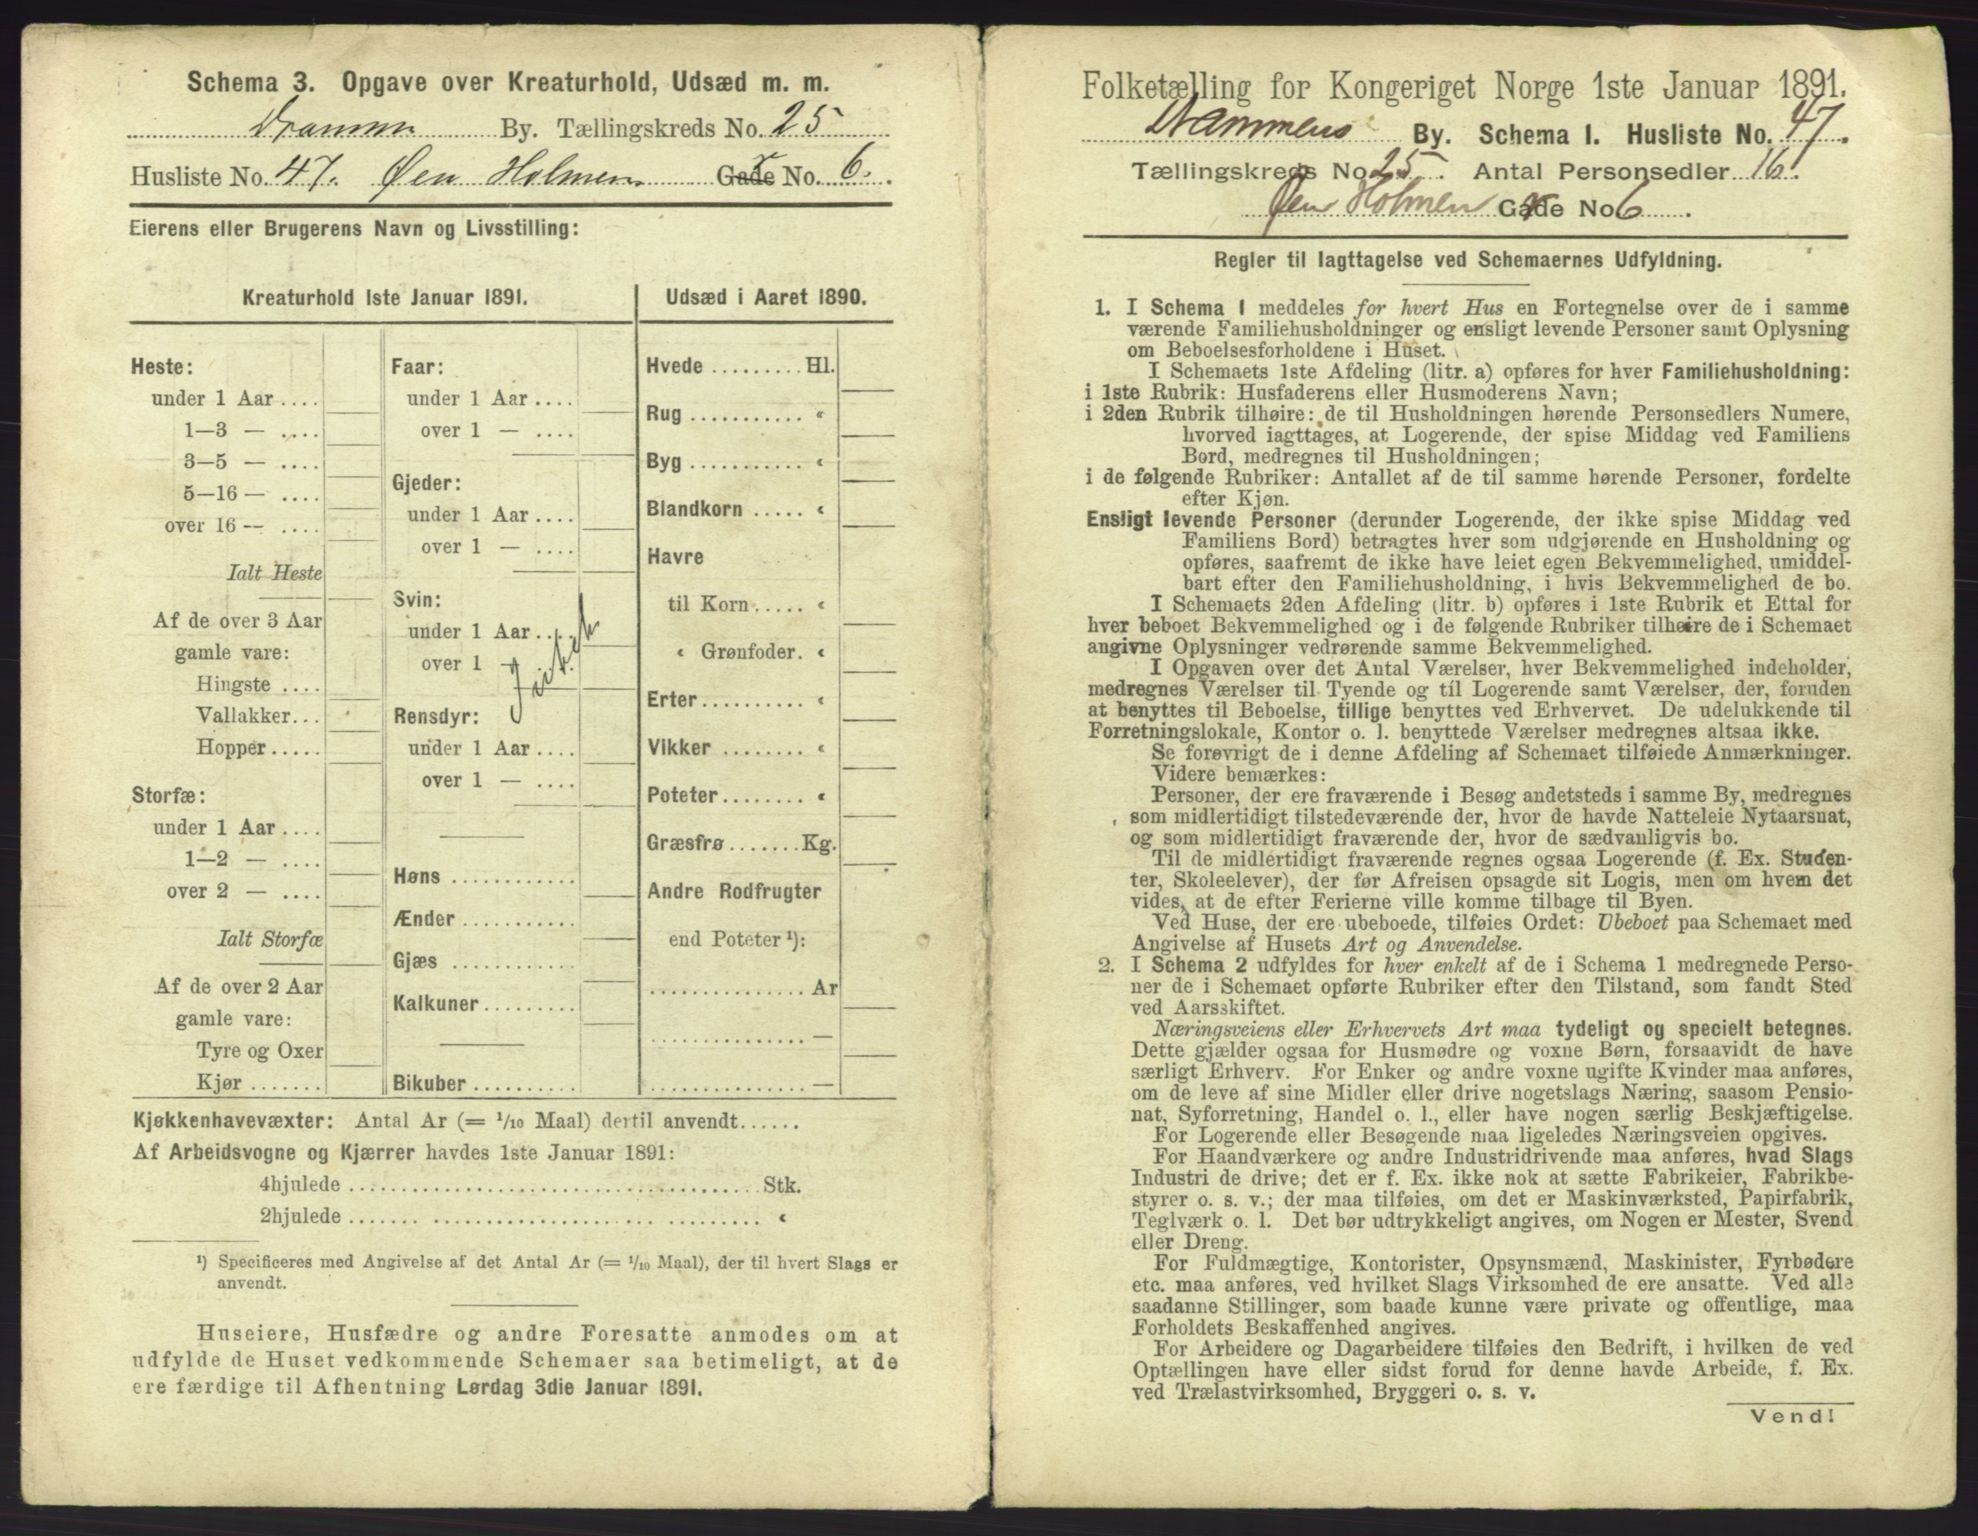 Schema 3. Opgave over Kreaturhold, Udsæd m. m.
Drammen By. Tællingskreds No. 25
Husliste No. 47. Øen Holmen Gade No. 6.
Eierens eller Brugerens Navn og Livsstilling:
Kreaturhold 1ste Januar 1891.
Heste:
under 1 Aar ....
1—3 — ....
3—5 — ....
5—16 — ....
over 16 — ....
Ialt Heste
Af de over 3 Aar
gamle vare:
Hingste ....
Vallakker...
Hopper.....
Storfæ:
under 1 Aar ....
1—2 — ....
over 2 — ....
Ialt Storfæ
Af de over 2 Aar
gamle vare:
Tyre og Oxer
Kjør .......
Faar:
under 1 Aar ....
over 1 — ....
Gjeder:
under 1 Aar ....
over 1 — ....
Svin:
under 1 Aar ....
over 1 — ....
Rensdyr:
under 1 Aar ....
over 1 — ....
Høns ............
Ænder ...........
Gjæs ............
Kalkuner .........
Bikuber ..........
Udsæd i Aaret 1890.
Hvede ......... Hl.
Rug ........... «
Byg ........... «
Blandkorn ..... «
Havre
til Korn ..... «
« Grønfoder. «
Erter.......... «
Vikker ........ «
Poteter........ «
Græsfrø ....... Kg.
Andre Rodfrugter
end Poteter ¹):
............... Ar
............... —
............... —
Kjøkkenhavevæxter: Antal Ar (= 1/10 Maal) dertil anvendt......
Af Arbeidsvogne og Kjærrer havdes 1ste Januar 1891:
4hjulede ........................................ Stk.
2hjulede ........................................ «
¹) Specificeres med Angivelse af det Antal Ar (= 1/10 Maal), der til hvert Slags er
anvendt.
Huseiere, Husfædre og andre Foresatte anmodes om at
udfylde de Huset vedkommende Schemaer saa betimeligt, at de
ere færdige til Afhentning Lørdag 3die Januar 1891.
Folketælling for Kongeriget Norge 1ste Januar 1891.
Drammens By. Schema 1. Husliste No. 47.
Tællingskreds No. 25. Antal Personsedler 16.
Øen Holmen Gade No 6.
Regler til Iagttagelse ved Schemaernes Udfyldning.
1. I Schema 1 meddeles for hvert Hus en Fortegnelse over de i samme
værende Familiehusholdninger og ensligt levende Personer samt Oplysning
om Beboelsesforholdene i Huset.
I Schemaets 1ste Afdeling (litr. a) opføres for hver Familiehusholdning:
i 1ste Rubrik: Husfaderens eller Husmoderens Navn;
i 2den Rubrik tilhøire: de til Husholdningen hørende Personsedlers Numere,
hvorved iagttages, at Logerende, der spise Middag ved Familiens
Bord, medregnes til Husholdningen;
i de følgende Rubriker: Antallet af de til samme hørende Personer, fordelte
efter Kjøn.
Ensligt levende Personer (derunder Logerende, der ikke spise Middag ved
Familiens Bord) betragtes hver som udgjørende en Husholdning og
opføres, saafremt de ikke have leiet egen Bekvemmelighed, umiddel-
bart efter den Familiehusholdning, i hvis Bekvemmelighed de bo.
I Schemaets 2den Afdeling (litr. b) opføres i 1ste Rubrik et Ettal for
hver beboet Bekvemmelighed og i de følgende Rubriker tilhøire de i Schemaet
angivne Oplysninger vedrørende samme Bekvemmelighed.
I Opgaven over det Antal Værelser, hver Bekvemmelighed indeholder,
medregnes Værelser til Tyende og til Logerende samt Værelser, der, foruden
at benyttes til Beboelse, tillige benyttes ved Erhvervet. De udelukkende til
Forretningslokale, Kontor o. l. benyttede Værelser medregnes altsaa ikke.
Se forøvrigt de i denne Afdeling af Schemaet tilføiede Anmærkninger.
Videre bemærkes:
Personer, der ere fraværende i Besøg andetsteds i samme By, medregnes
som midlertidigt tilstedeværende der, hvor de havde Natteleie Nytaarsnat,
og som midlertidigt fraværende der, hvor de sædvanligvis bo.
Til de midlertidigt fraværende regnes ogsaa Logerende (f. Ex. Studen-
ter, Skoleelever), der før Afreisen opsagde sit Logis, men om hvem det
vides, at de efter Ferierne ville komme tilbage til Byen.
Ved Huse, der ere ubeboede, tilføies Ordet: Ubeboet paa Schemaet med
Angivelse af Husets Art og Anvendelse.
2. I Schema 2 udfyldes for hver enkelt af de i Schema 1 medregnede Perso-
ner de i Schemaet opførte Rubriker efter den Tilstand, som fandt Sted
ved Aarsskiftet.
Næringsveiens eller Erhvervets Art maa tydeligt og specielt betegnes.
Dette gjælder ogsaa for Husmødre og voxne Børn, forsaavidt de have
særligt Erhverv. For Enker og andre voxne ugifte Kvinder maa anføres,
om de leve af sine Midler eller drive nogetslags Næring, saasom Pensio-
nat, Syforretning, Handel o. l., eller have nogen særlig Beskjæftigelse.
For Logerende eller Besøgende maa ligeledes Næringsveien opgives.
For Haandværkere og andre Industridrivende maa anføres, hvad Slags
Industri de drive; det er f. Ex. ikke nok at sætte Fabrikeier, Fabrikbe-
styrer o. s. v.; der maa tilføies, om det er Maskinværksted, Papirfabrik,
Teglværk o. l. Det bør udtrykkeligt angives, om Nogen er Mester, Svend
eller Dreng.
For Fuldmægtige, Kontorister, Opsynsmænd, Maskinister, Fyrbødere
etc. maa anføres, ved hvilket Slags Virksomhed de ere ansatte. Ved alle
saadanne Stillinger, som baade kunne være private og offentlige, maa
Forholdets Beskaffenhed angives.
For Arbeidere og Dagarbeidere tilføies den Bedrift, i hvilken de ved
Optællingen have eller sidst forud for denne havde Arbeide, f. Ex.
ved Trælastvirksomhed, Bryggeri o. s. v.
Vend!